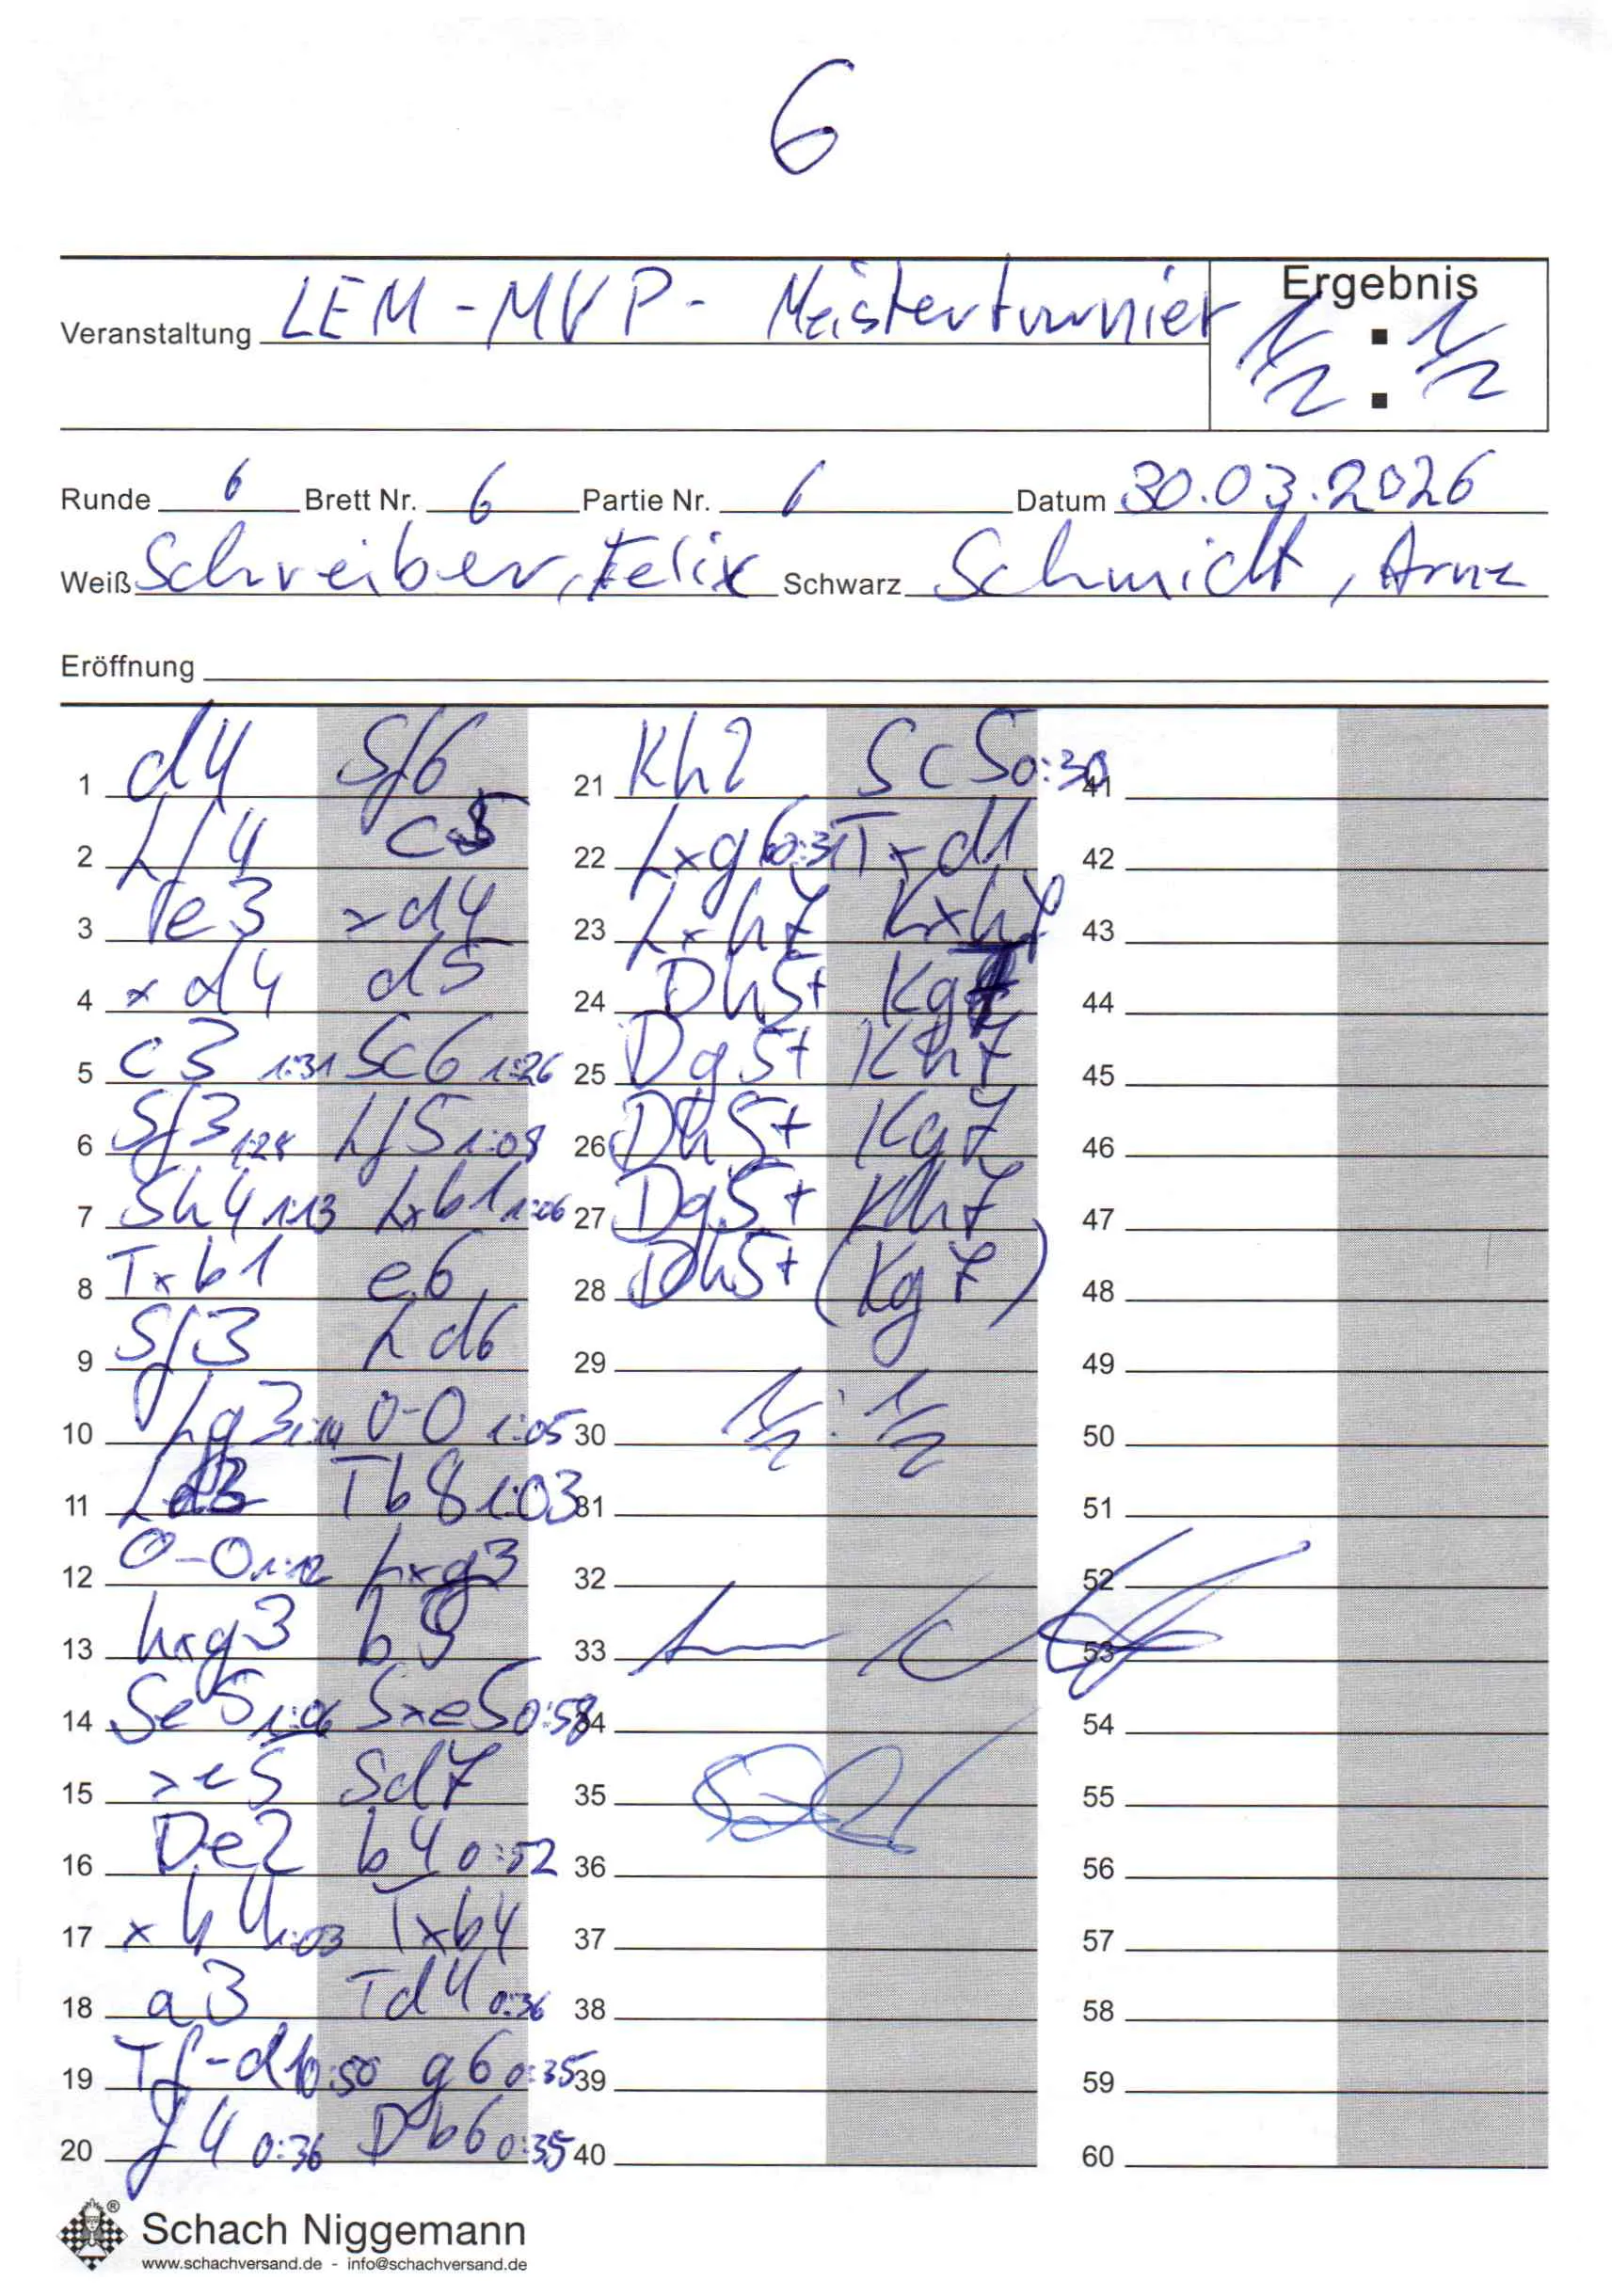 6
Ergebnis
Veranstaltung LEM - MVP - Meisterturnier ½ : ½
Runde 6 Brett Nr. 6 Partie Nr. 6 Datum 30.03.2026
Weiß Schreiber, Felix Schwarz Schmidt, Arne
Eröffnung
1 d4 Sf6
2 Lf4 c5
3 e3 xd4
4 xd4 d5
5 c3 1:31 Sc6 1:26
6 Sf3 1:28 Lf5 1:08
7 Sh4 1:13 Lxb1 1:06
8 Txb1 e6
9 Sf3 Ld6
10 Lg3 1:14 0-0 1:05
11 Ld3 Tb8 1:03
12 0-0 1:12 Lxg3
13 hxg3 b5
14 Se5 1:06 Sxe5 0:58
15 xe5 Sd7
16 De2 b4 0:52
17 xb4 1:03 Txb4
18 a3 Td4 0:36
19 Tf-d1 0:50 g6 0:35
20 f4 0:36 Db6 0:35
21 Kh2 Sc5 0:30
22 Lxg6 0:31 Txd1
23 Lxh7 Kxh7
24 Dh5+ Kg7
25 Dg5+ Kh7
26 Dh5+ Kg7
27 Dg5+ Kh7
28 Dh5+ (Kg7)
29
30 ½ : ½
31
32
33
34
35
36
37
38
39
40
41
42
43
44
45
46
47
48
49
50
51
52
53
54
55
56
57
58
59
60
® Schach Niggemann
www.schachversand.de - info@schachversand.de